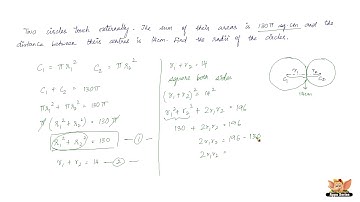 Two circles touch externally. The sum of their areas is 130π sq.cm and the
distance between their centres is 14cm. Find the radii of the circles.
C₁ = πr₁² C₂ = πr₂²
C₁ + C₂ = 130π
πr₁² + πr₂² = 130π
π(r₁² + r₂²) = 130π
(r₁² + r₂²) = 130 — ①
r₁ + r₂ = 14 — ②
r₁ + r₂ = 14
square both sides
(r₁ + r₂)² = 14²
r₁² + r₂² + 2r₁r₂ = 196
130 + 2r₁r₂ = 196
2r₁r₂ = 196 - 130
2r₁r₂ =
C₁ r₁ r₂ C₂
14cm